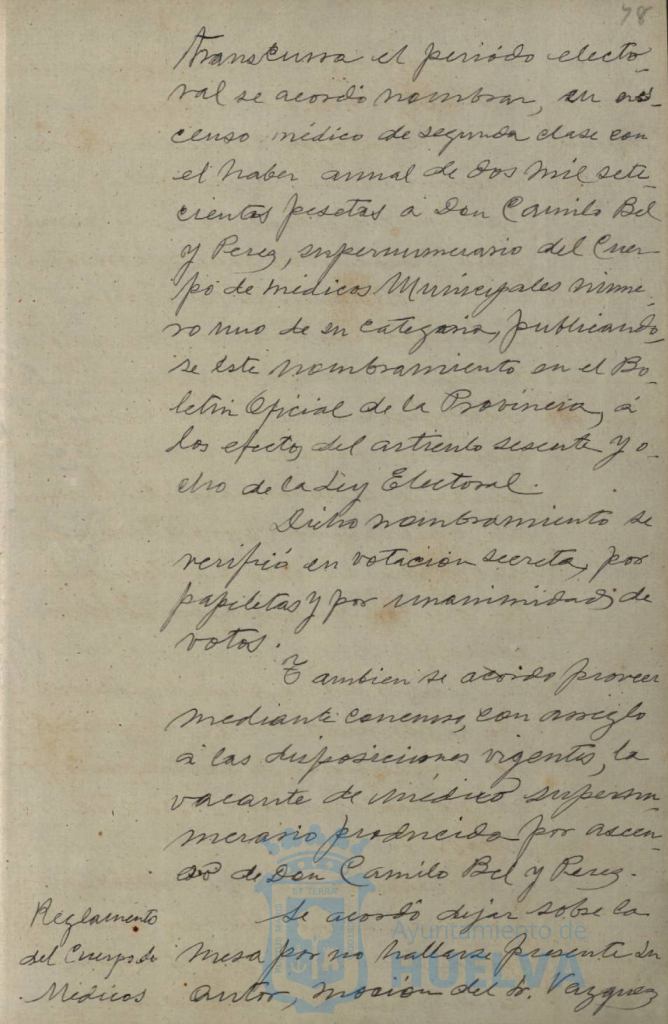 78
transcurra el periódo electo-
ral se acordó nombrar, en as-
censo médico de segunda clase con
el haber annal de dos mil sete-
cientas pesetas á Don Camilo Bel
y Perez, supernumerario del Cuer-
po de Médicos Municipales nume-
ro uno de su categoria, publicando-
se este nombramiento en el Bo-
letin Oficial de la Provincia, á
los efectos del articulo sesenta y o-
cho de la Ley Electoral.
Dicho nombramiento se
verificó en votacion secreta, por
papeletas y por unanimidad de
votos.
Tambien se acordo proveer
mediante concurso, con arreglo
á las disposiciones vigentes, la
vacante de médico supernu-
merario producida por ascen-
so de Don Camilo Bel y Perez.
Reglamento
del Cuerpo de
Médicos
Se acordó dejar sobre la
mesa por no hallarse presente su
autor, mocion del Sr. Vazquez
Ayuntamiento de
HUELVA